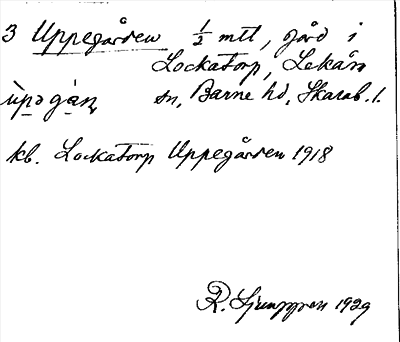 3 Uppegården ½ mtl, gård i
Lockatorp, Lekåsa
ùpəgáɳ sn, Barne hd, Skarab. l.
kb. Lockatorp Uppegården 1918
R. Ljunggren 1929